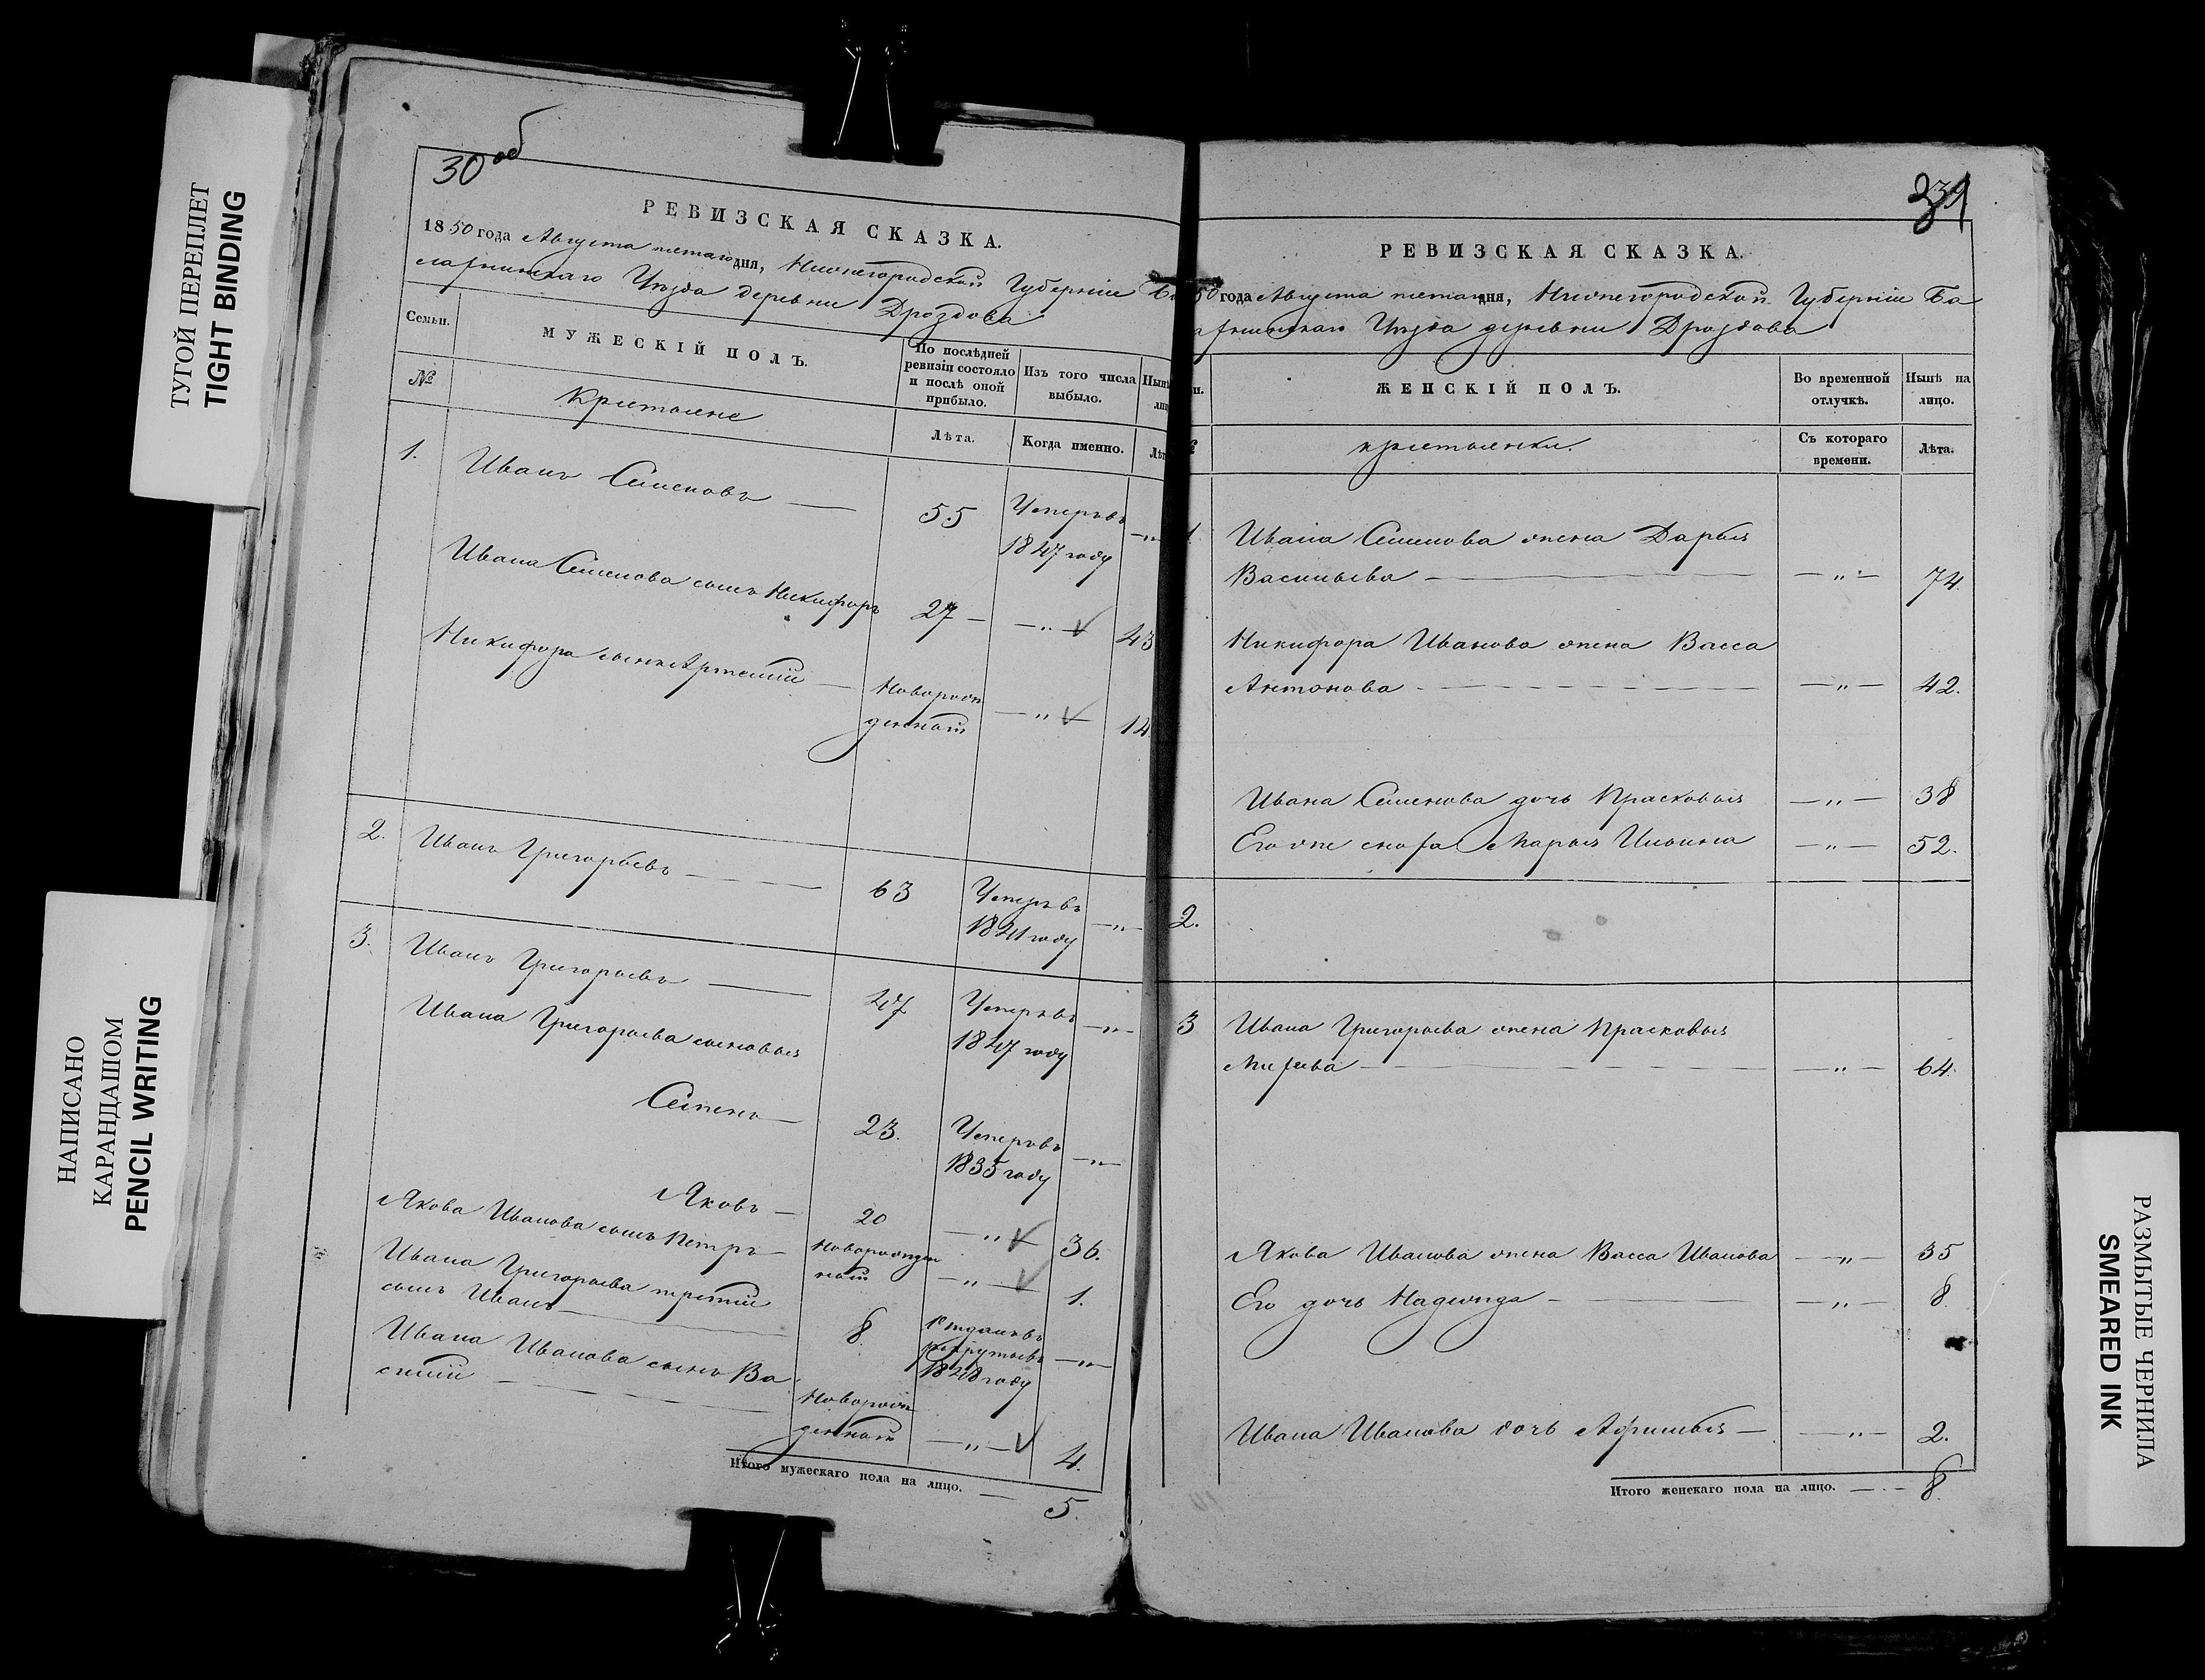 ТУГОЙ ПЕРЕПЛЕТ
TIGHT BINDING
НАПИСАНО
КАРАНДАШОМ
PENCIL WRITING
30 об
РЕВИЗСКАЯ СКАЗКА.
1850 года Августа дня, Нижегородской Губернiи Ба
лахнинскаго Уѣзда деревни Дроздова
Семьи. МУЖЕСКІЙ ПОЛЪ. По послѣдней ревизіи состояло и послѣ оной прибыло. Изъ того числа выбыло.
№ Крестьяне Лѣта. Когда именно.
1. Иванъ Семеновъ — 55 Умеръ въ 1847 году —„—
Ивана Семенова сынъ Никифоръ 27 — —„— 43
Никифора сынъ Артемій — Новорож
денный —„— 14
2. Иванъ Григорьевъ — 63 Умеръ въ
1841 году —„—
3. Иванъ Григорьевъ — 47 Умеръ въ
1847 году —„—
Ивана Григорьева сыновья
Семенъ — 23. Умеръ въ
1835 году —„—
Яковъ — 20 —„— 36.
Якова Иванова сынъ Петръ — Новорожден
ный —„— 1.
Ивана Григорьева третій
сынъ Иванъ — 8 Отданъ въ
рекруты въ
1848 году —„—
Ивана Иванова сынъ Ва
силій — Новорож
денный —„— 4.
Итого мужескаго пола на лицо. — 5.
31
РЕВИЗСКАЯ СКАЗКА.
50 года Августа дня, Нижегородской Губернiи Ба
лахнинскаго Уѣзда деревни Дроздова
ЖЕНСКІЙ ПОЛЪ. Во временной отлучкѣ. Нынѣ на лицо.
крестьянки. Съ котораго времени. Лѣта.
1. Ивана Семенова жена Дарья
Васильева — —„— 74.
Никифора Иванова жена Васса
Антонова — —„— 42.
Ивана Семенова дочь Прасковья —„— 38
Его же сноха Марья Ильина —„— 52.
2.
3 Ивана Григорьева жена Прасковья
—„— 64.
Якова Иванова жена Васса Иванова —„— 35
Его дочь Надежда — —„— 8.
Ивана Иванова дочь Афимья — —„— 2.
Итого женскаго пола на лицо. — 8.
РАЗМЫТЫЕ ЧЕРНИЛА
SMEARED INK